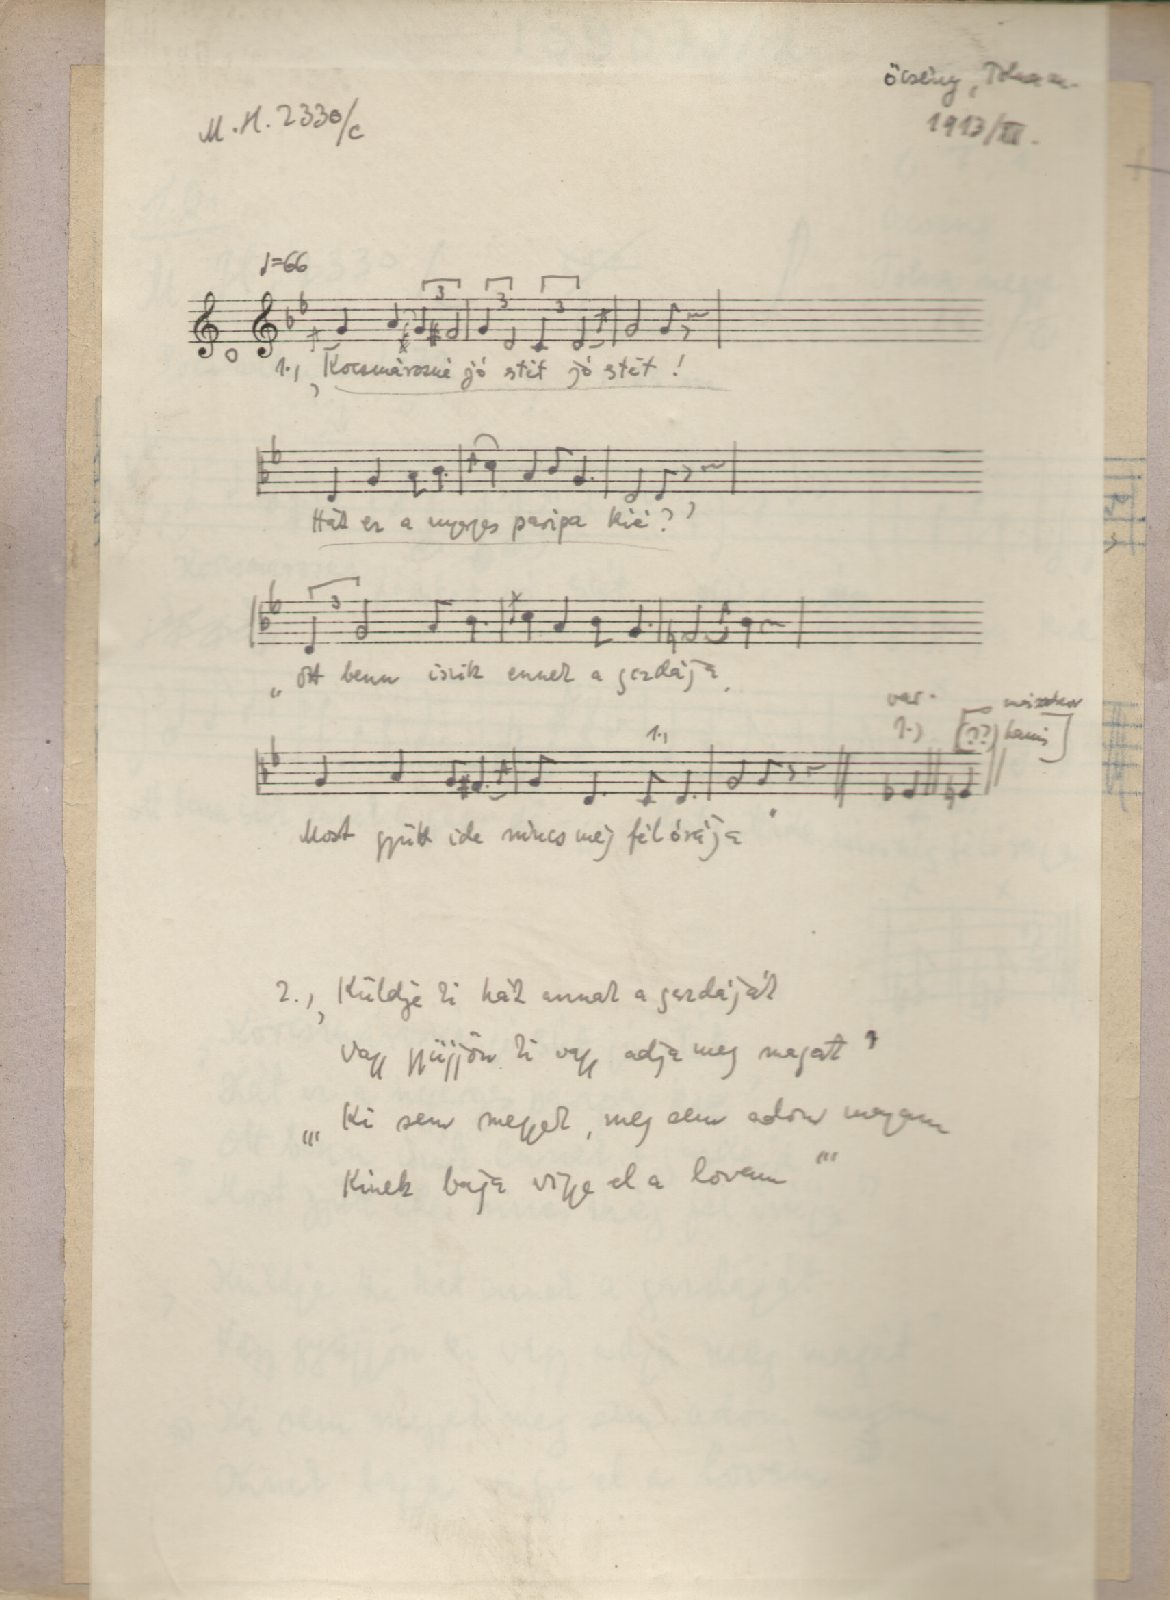 Őcsény, Tolna m.
M.H. 2330/c
1913/III.
♩=66
3 3 3
1., Kocsmárosné jó stét jó stét!
Hát ez a nyerges paripa kié?"
3
„ Ott benn iszik ennek a gazdája
var.
1.,
1., [??) hamis]
Most gyütt ide nincs még fél órája "
2., Küldje ki hát annak a gazdáját
Vagy gyüjjön ki vagy adja meg magát "
„„ Ki sem megyek, meg sem adom magam
Kinek baja vigye el a lovam "'